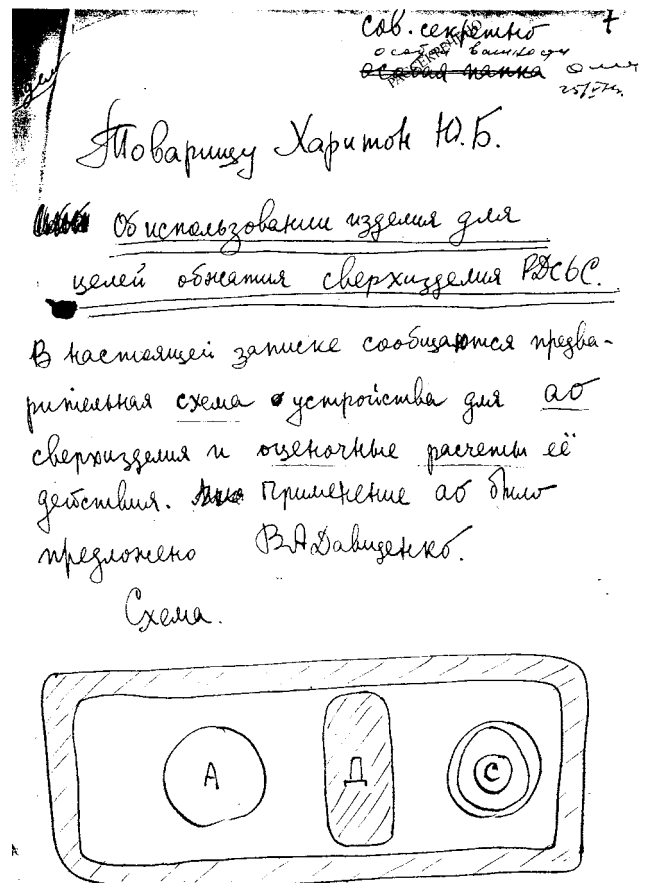 7
сов. секретно
РАССЕКРЕЧЕНО
особой важности
особая папка
Товарищу Харитон Ю.Б.
Об использовании изделия для
целей обжатия сверхизделия РДС6С.
В настоящей записке сообщаются предва-
рительная схема устройства для АО
сверхизделия и оценочные расчеты её
действия. Применение АО было
предложено В.А Давиденко.
Схема.
А Д С